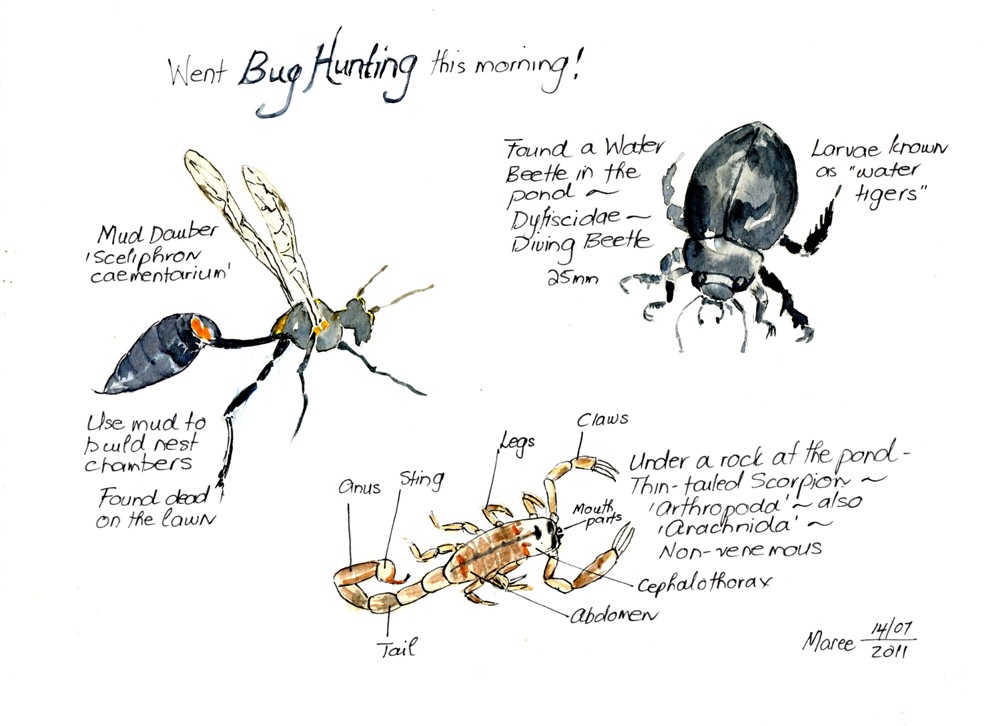 Went Bug Hunting this morning!
Mud Dauber
'Sceliphron
caementarium'
Use mud to
build nest
chambers
Found dead
on the lawn
Found a Water
Beetle in the
pond ~
Dytiscidae ~
Diving Beetle
25mm
Larvae known
as "water
tigers"
Claws
Legs
Sting
anus
Mouth
parts
Cephalothorax
Abdomen
Tail
Under a rock at the pond -
Thin-tailed Scorpion ~
'Arthropoda' ~ also
'Arachnida' ~
Non-venemous
Maree 14/07
2011